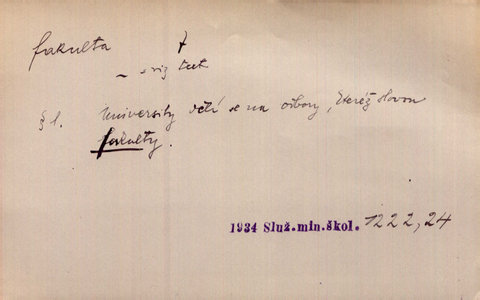 fakulta
viz text
§ 1. University dělí se na obory, kteréž slovou
fakulty.
1934 Služ.min.škol. 1222,24